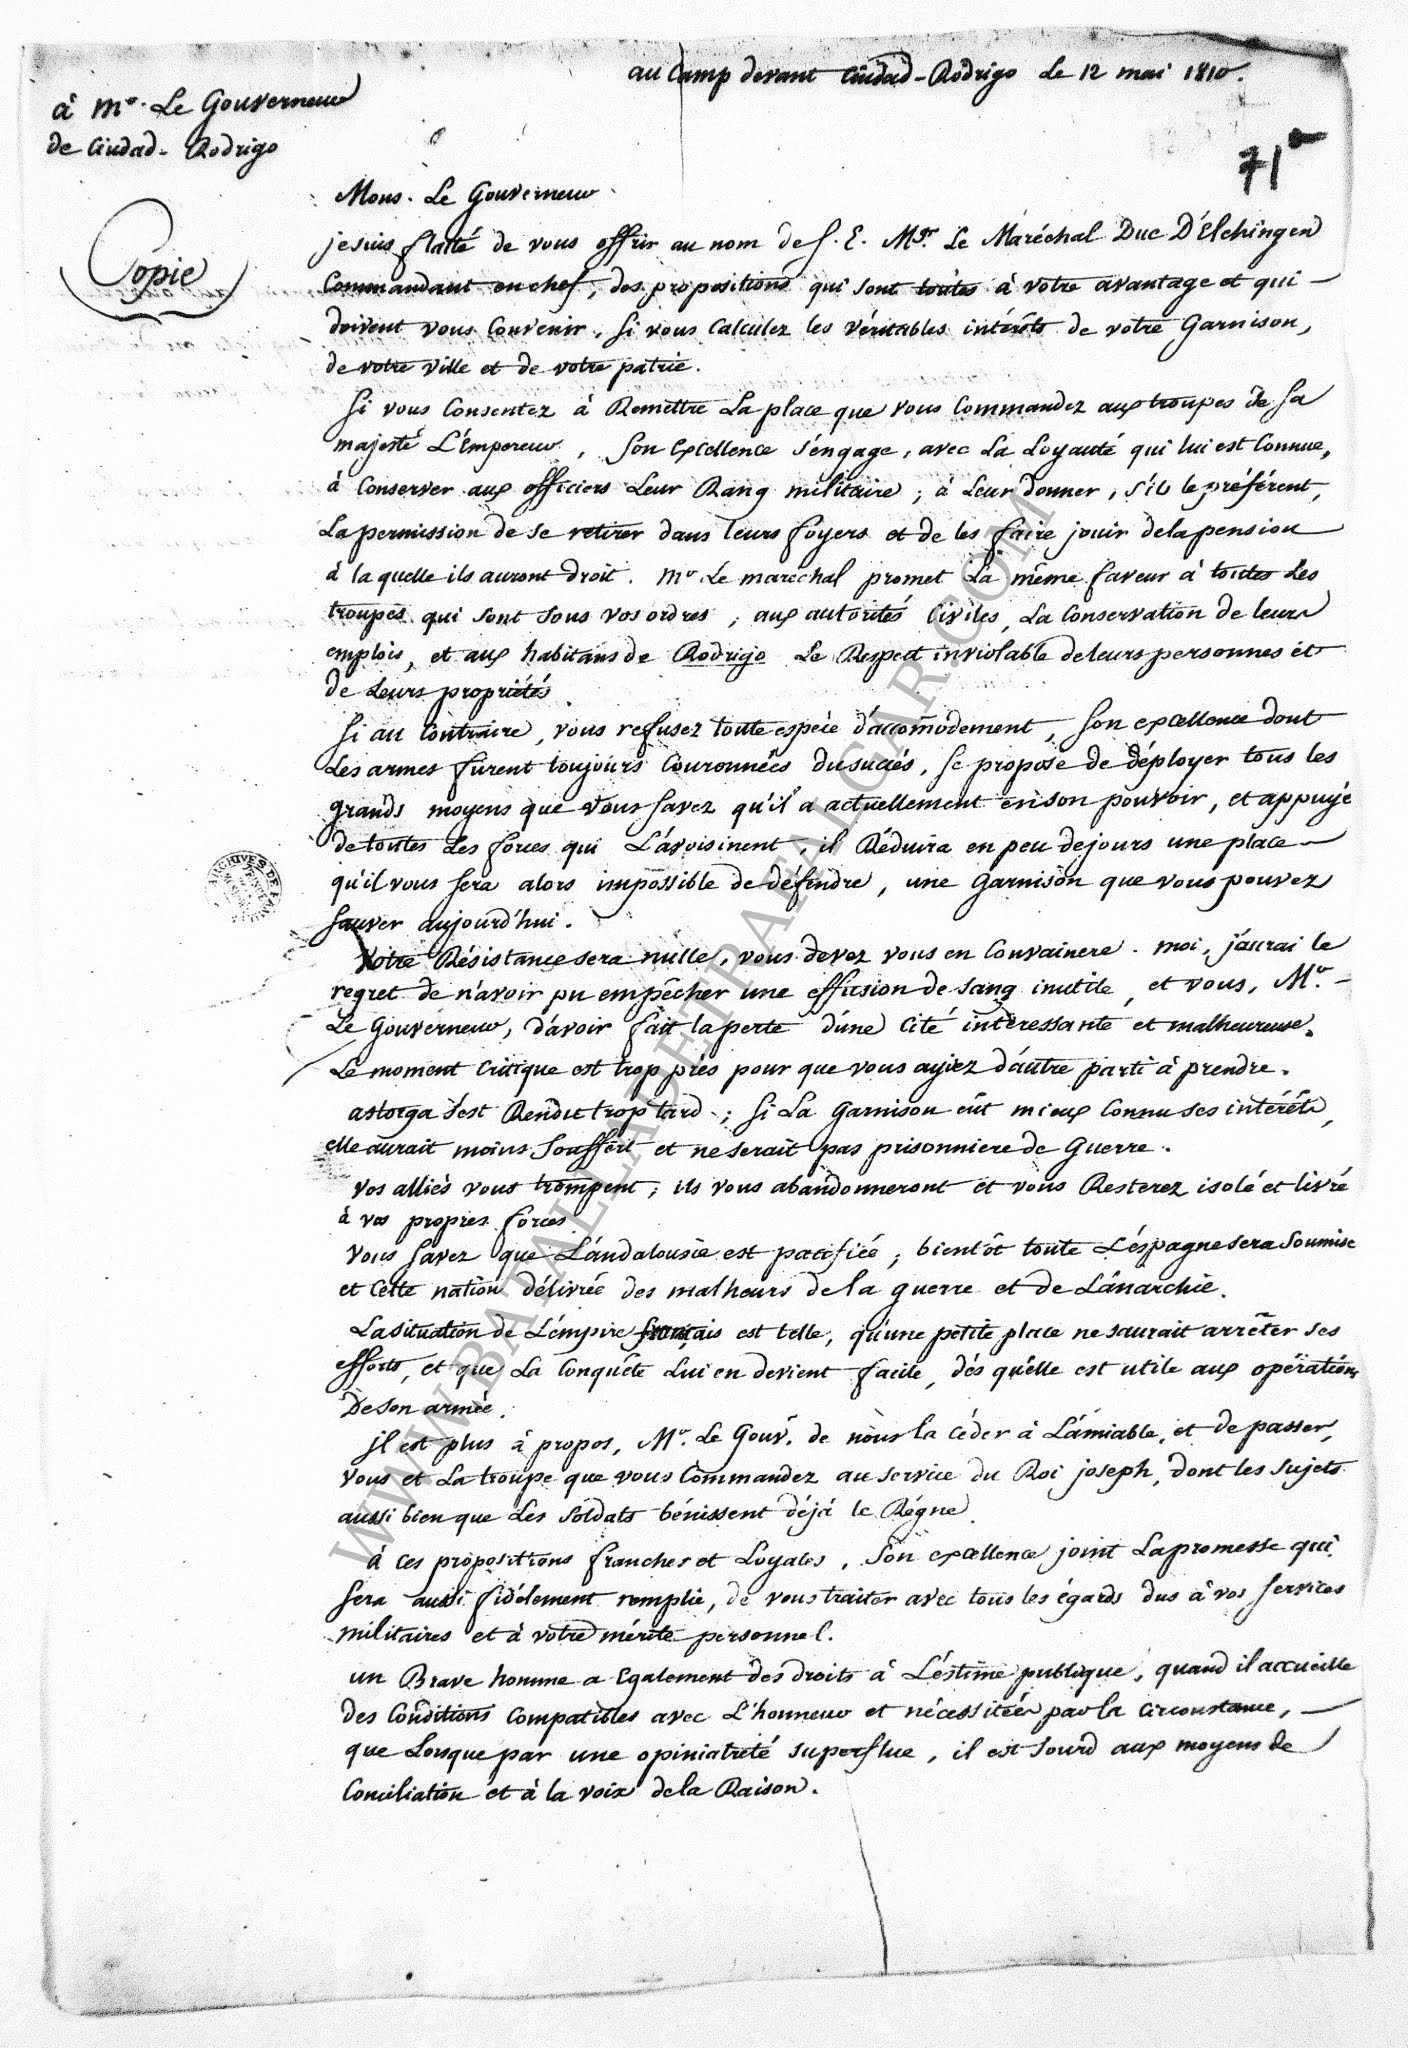 au Camp devant Ciudad-Rodrigo le 12 mai 1810.
à Mr. Le Gouverneur
de Ciudad-Rodrigo
71
Copie
Mons. Le Gouverneur
je suis flatté de vous offrir au nom de S. E. Mgr. Le Maréchal Duc D'Elchingen
Commandant en chef, des propositions qui sont toutes à votre avantage et qui
doivent vous convenir, si vous calculez les véritables intérêts de votre Garnison,
de votre ville et de votre patrie.
Si vous Consentez à Remettre La place que vous commandez aux troupes de Sa
majesté L'Empereur, Son Excellence s'engage, avec La Loyauté qui lui est Connue,
à Conserver aux officiers Leur Rang militaire; à Leur donner, s'ils le préférent,
La permission de se retirer dans leurs foyers et de les faire jouir de la pension
à la quelle ils auront droit. Mr Le maréchal promet La même faveur à toutes Les
troupes qui sont sous vos ordres, aux autorités Civiles, La Conservation de leurs
emplois, et aux habitans de Rodrigo Le Respect inviolable de leurs personnes et
de Leurs propriétés.
Si au Contraire, vous refusez toute espèce d'accomodement, Son excellence dont
Les armes furent toujours Couronnées du succés, se propose de déployer tous les
grands moyens que vous savez qu'il a actuellement en son pouvoir, et appuyé
de toutes Les forces qui L'avoisinent, il Réduira en peu de jours une place
qu'il vous sera alors impossible de défendre, une Garnison que vous pouvez
sauver aujourd'hui.
Votre Résistance sera nulle, vous devez vous en Convaincre. moi, j'aurai le
regret de n'avoir pu empêcher une effusion de sang inutile, et vous, Mr.
Le Gouverneur, d'avoir fait la perte d'une Cité intéressante et malheureuse.
Le moment Critique est trop près pour que vous ayiez d'autre parti à prendre.
astorga s'est Rendu trop tard; Si La Garnison eût mieux Connu ses intérêts,
elle aurait moins Souffert et ne serait pas prisonniere de Guerre.
Vos alliés vous trompent; ils vous abandonneront et vous Resterez isolé et livré
à vos propres forces.
Vous savez que L'andalousie est pacifiée; bientôt toute L'éspagne sera Soumise
et Cette nation délivrée des malheurs de la guerre et de L'anarchie.
La situation de L'empire français est telle, qu'une petite place ne saurait arrêter ses
efforts, et que La Conquête Lui en devient facile, dés qu'elle est utile aux opérations
De son armée.
il est plus à propos, Mr. Le Gouvr. de nous la céder à L'amiable, et de passer,
vous et La troupe que vous Commandez au service du Roi joseph, dont les sujets
aussi bien que Les soldats bénissent déjà le Régne.
à Ces propositions franches et Loyales, Son excellence joint La promesse qui
sera aussi fidélement remplie, de vous traiter avec tous les égards dus à vos services
militaires et à votre mérite personnel.
un Brave homme a Egalement des droits à L'éstime publique, quand il accueille
des Conditions Compatibles avec L'honneur et nécessitées par la Circonstance,
que Lorsque par une opiniatreté superflue, il est sourd aux moyens de
Conciliation et à la voix de la Raison.
WWW.BATALLADETRAFALGAR.COM